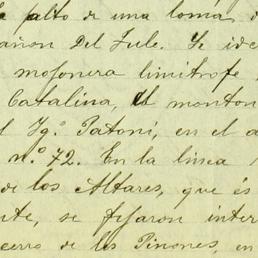 alto de una loma, d
añon del Tule. Se ide
mojonera limitrofe
Catalina, el monton
l Yg.º Patoni, en el a
n.º 72. En la linea
de los Altares, que és
te, se fijaron inter
cerro de los Piñones, en